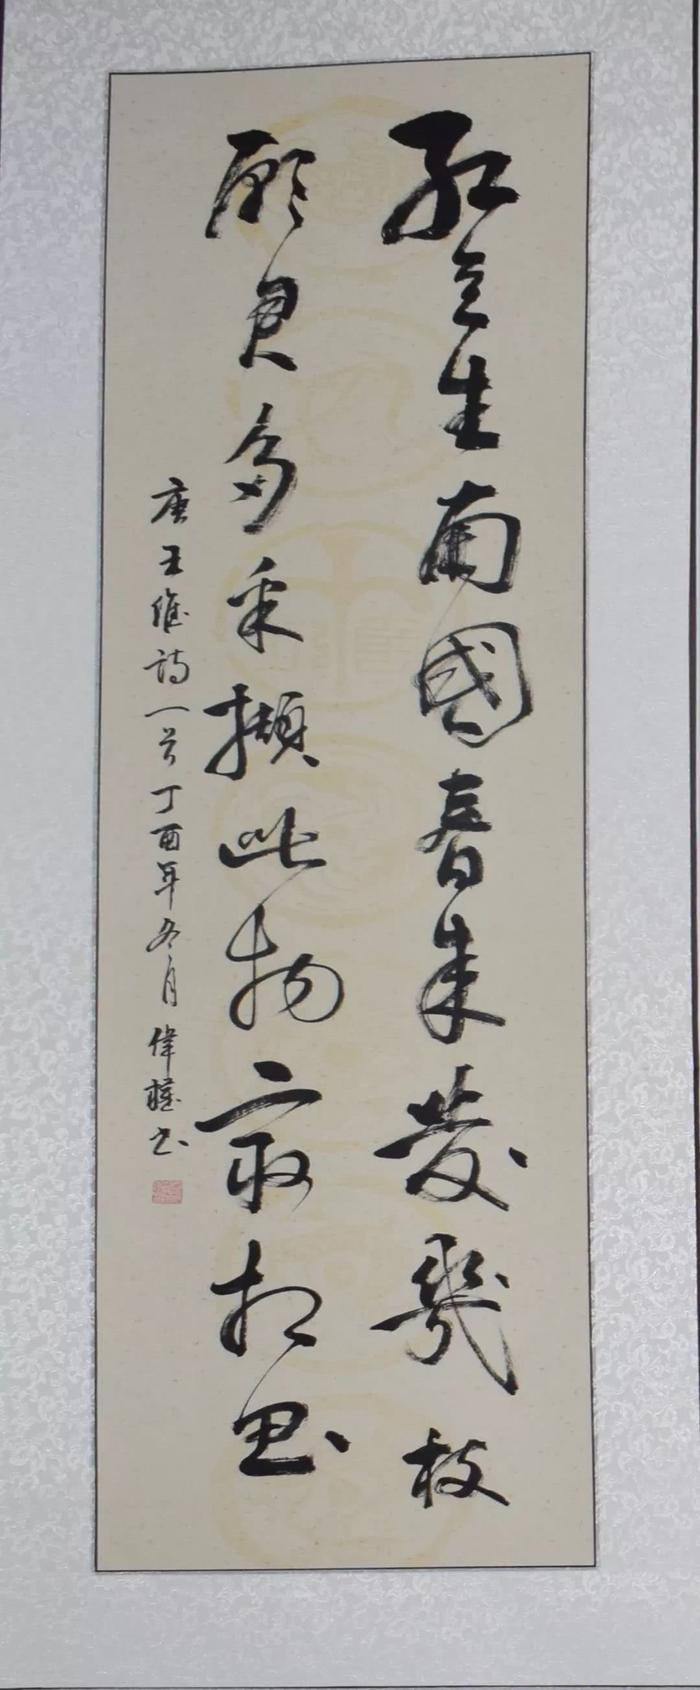 红豆生南國春来發幾枝
願君多采擷此物最相思
唐王維詩一首丁酉年冬月偉书